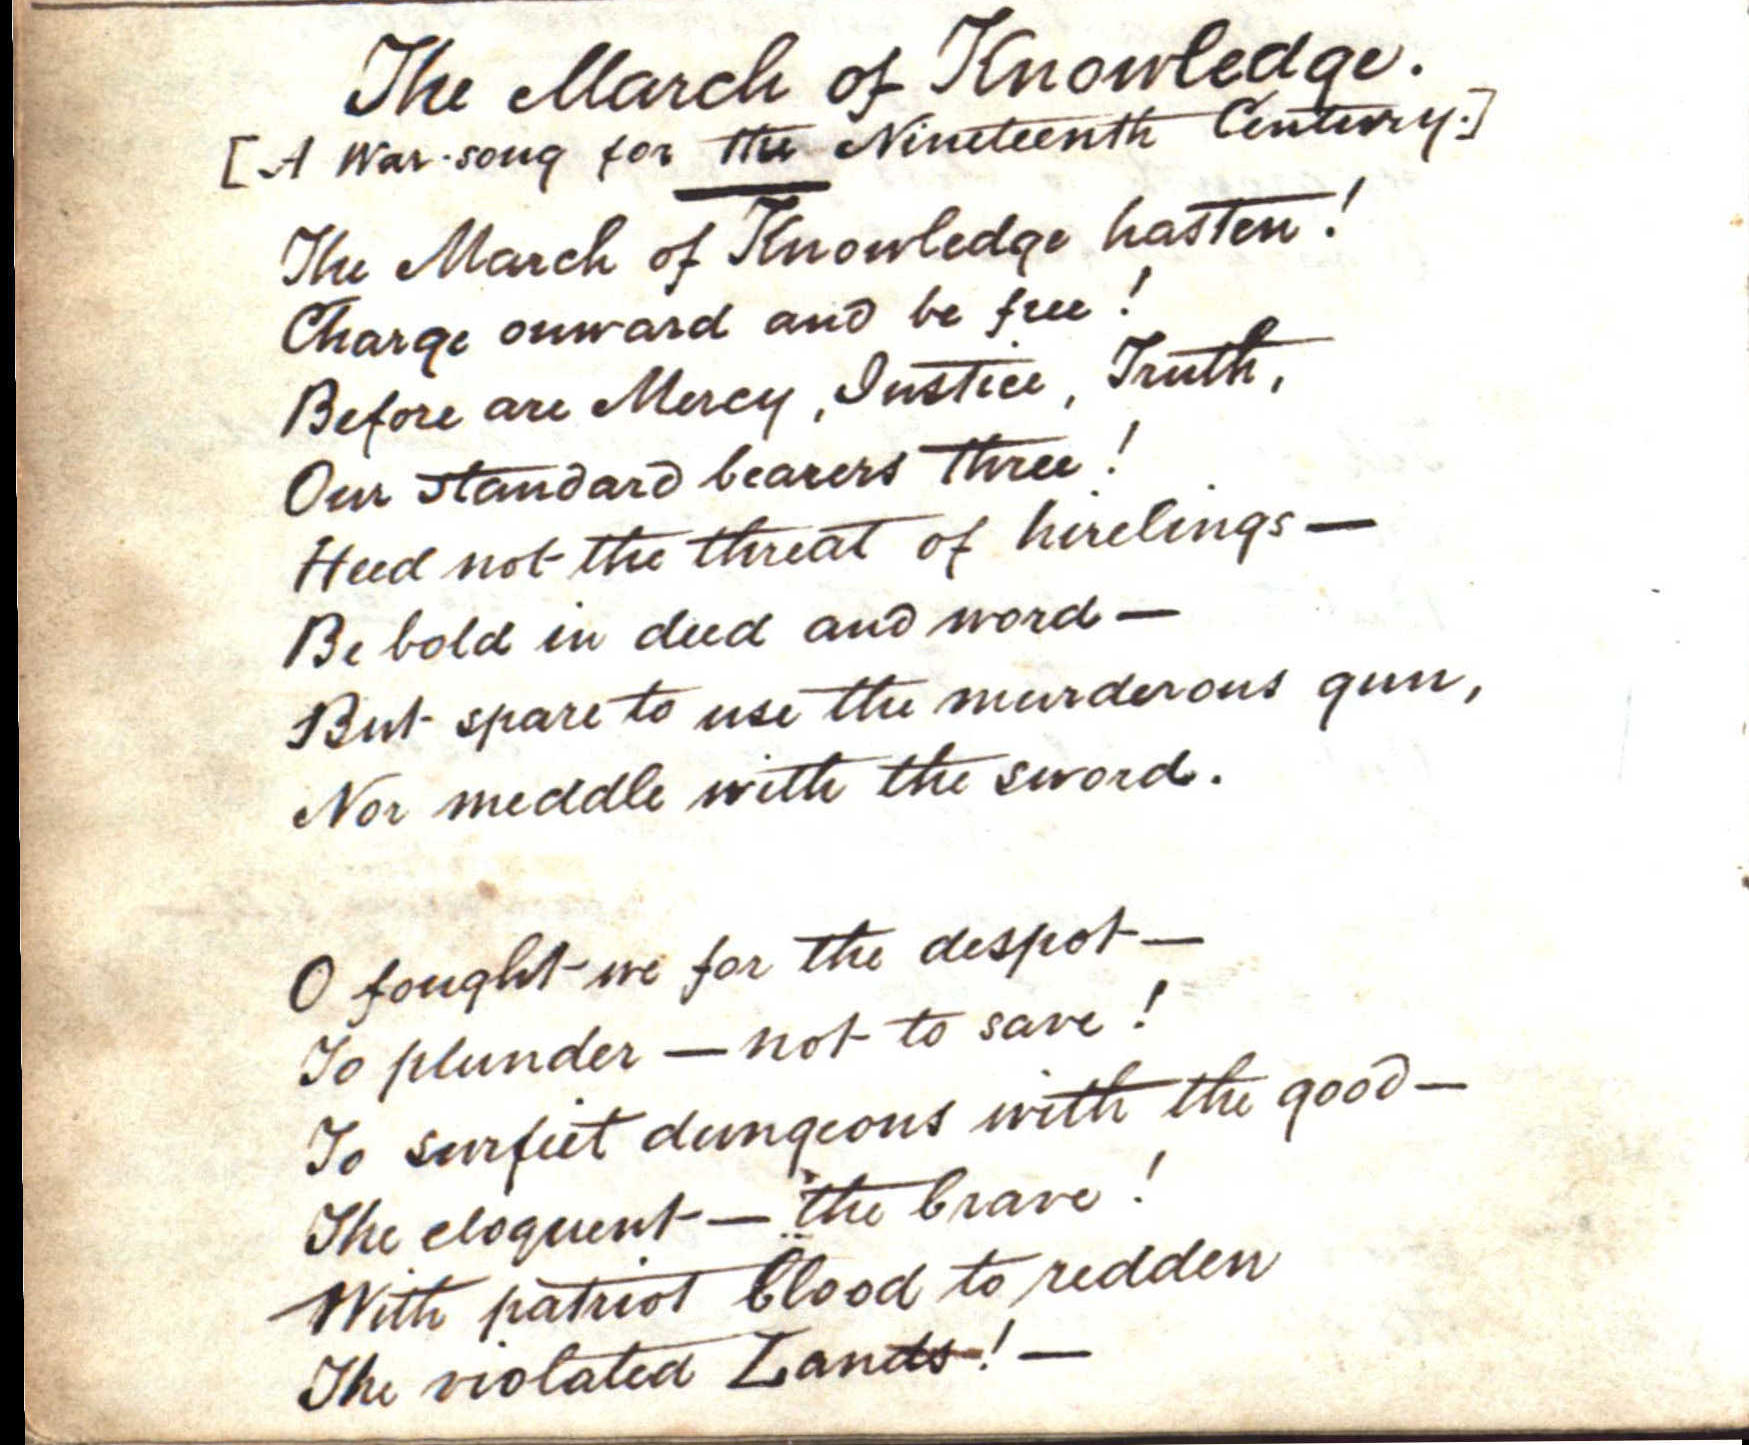 The March of Knowledge.
[A War-song for the Nineteenth Century.]
The March of Knowledge hasten!
Charge onward and be free!
Before are Mercy, Justice, Truth,
Our standard bearers three!
Heed not the threat of hirelings —
Be bold in deed and word —
But spare to use the murderous gun,
Nor meddle with the sword.
O fought we for the despot —
To plunder — not to save!
To surfeit dungeons with the good —
The eloquent — the brave!
With patriot blood to redden
The violated Lands! —